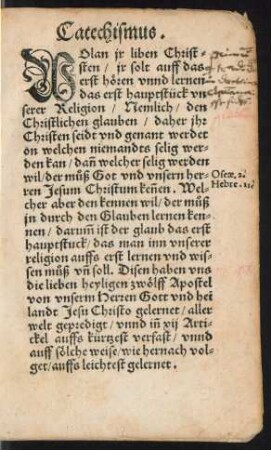 Catechismus.
WOlan jr liben Christ⸗
sten / jr solt auff das
erst hören vnnd lernen
das erst hauptstück vn
serer Religion / Nemlich / den
Christlichen glauben / daher jhr
Christen seidt vnd genant werdet
on welchen niemandts selig wer⸗
den kan / dañ welcher selig werden
wil / der müß Got vnd vnsern her⸗
ren Jesum Christum keñen. Wel⸗
cher aber den kennen wil / der müß
jn durch den Glauben lernen ken⸗
nen / darum̃ ist der glaub das erst
hauptstuck / das man inn vnserer
religion auffs erst lernen vnd wis⸗
sen müß vñ soll. Disen haben vns
die lieben heyligen zwölff Apostel
von vnserm Herren Gott vnd hei
landt Jesu Christo gelernet / aller
welt gepredigt / vnnd iñ xij Arti⸗
ckel auffs kürtzest verfast / vnnd
auff sölche weise / wie hernach vol⸗
get / auffs leichtest gelernet.
Oseæ. 2.
Hebre. 11.